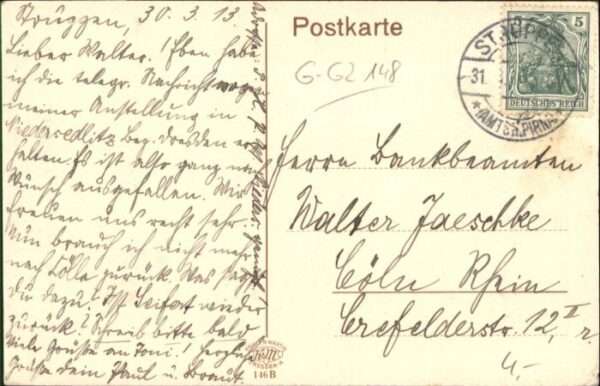 Struppen, 30.3.13.
Lieber Walter! Eben habe
ich die telegr. Nachricht weg.
meiner Anstellung in
Niedersedlitz Bez. Dresden er-
halten. Es ist also ganz nach
Wunsch ausgefallen. Wir
freuen uns recht sehr.
Nun brauch ich nicht mehr
nach Cölle zurück. Was sagst
Du dazu? Ist Seifert wieder
zurück? Schreib bitte bald
Viele Grüße an Toni! Herzliche
Grüße dein Paul u. Braut.
Postkarte
G-GZ 148
ST
31
(AMTSH. PIRNA)
5
DEUTSCHES REICH
Herrn Bankbeamten
Walter Jaeschke
Cöln Rhein
Crefelderstr. 12, II r.
4,-
146 B